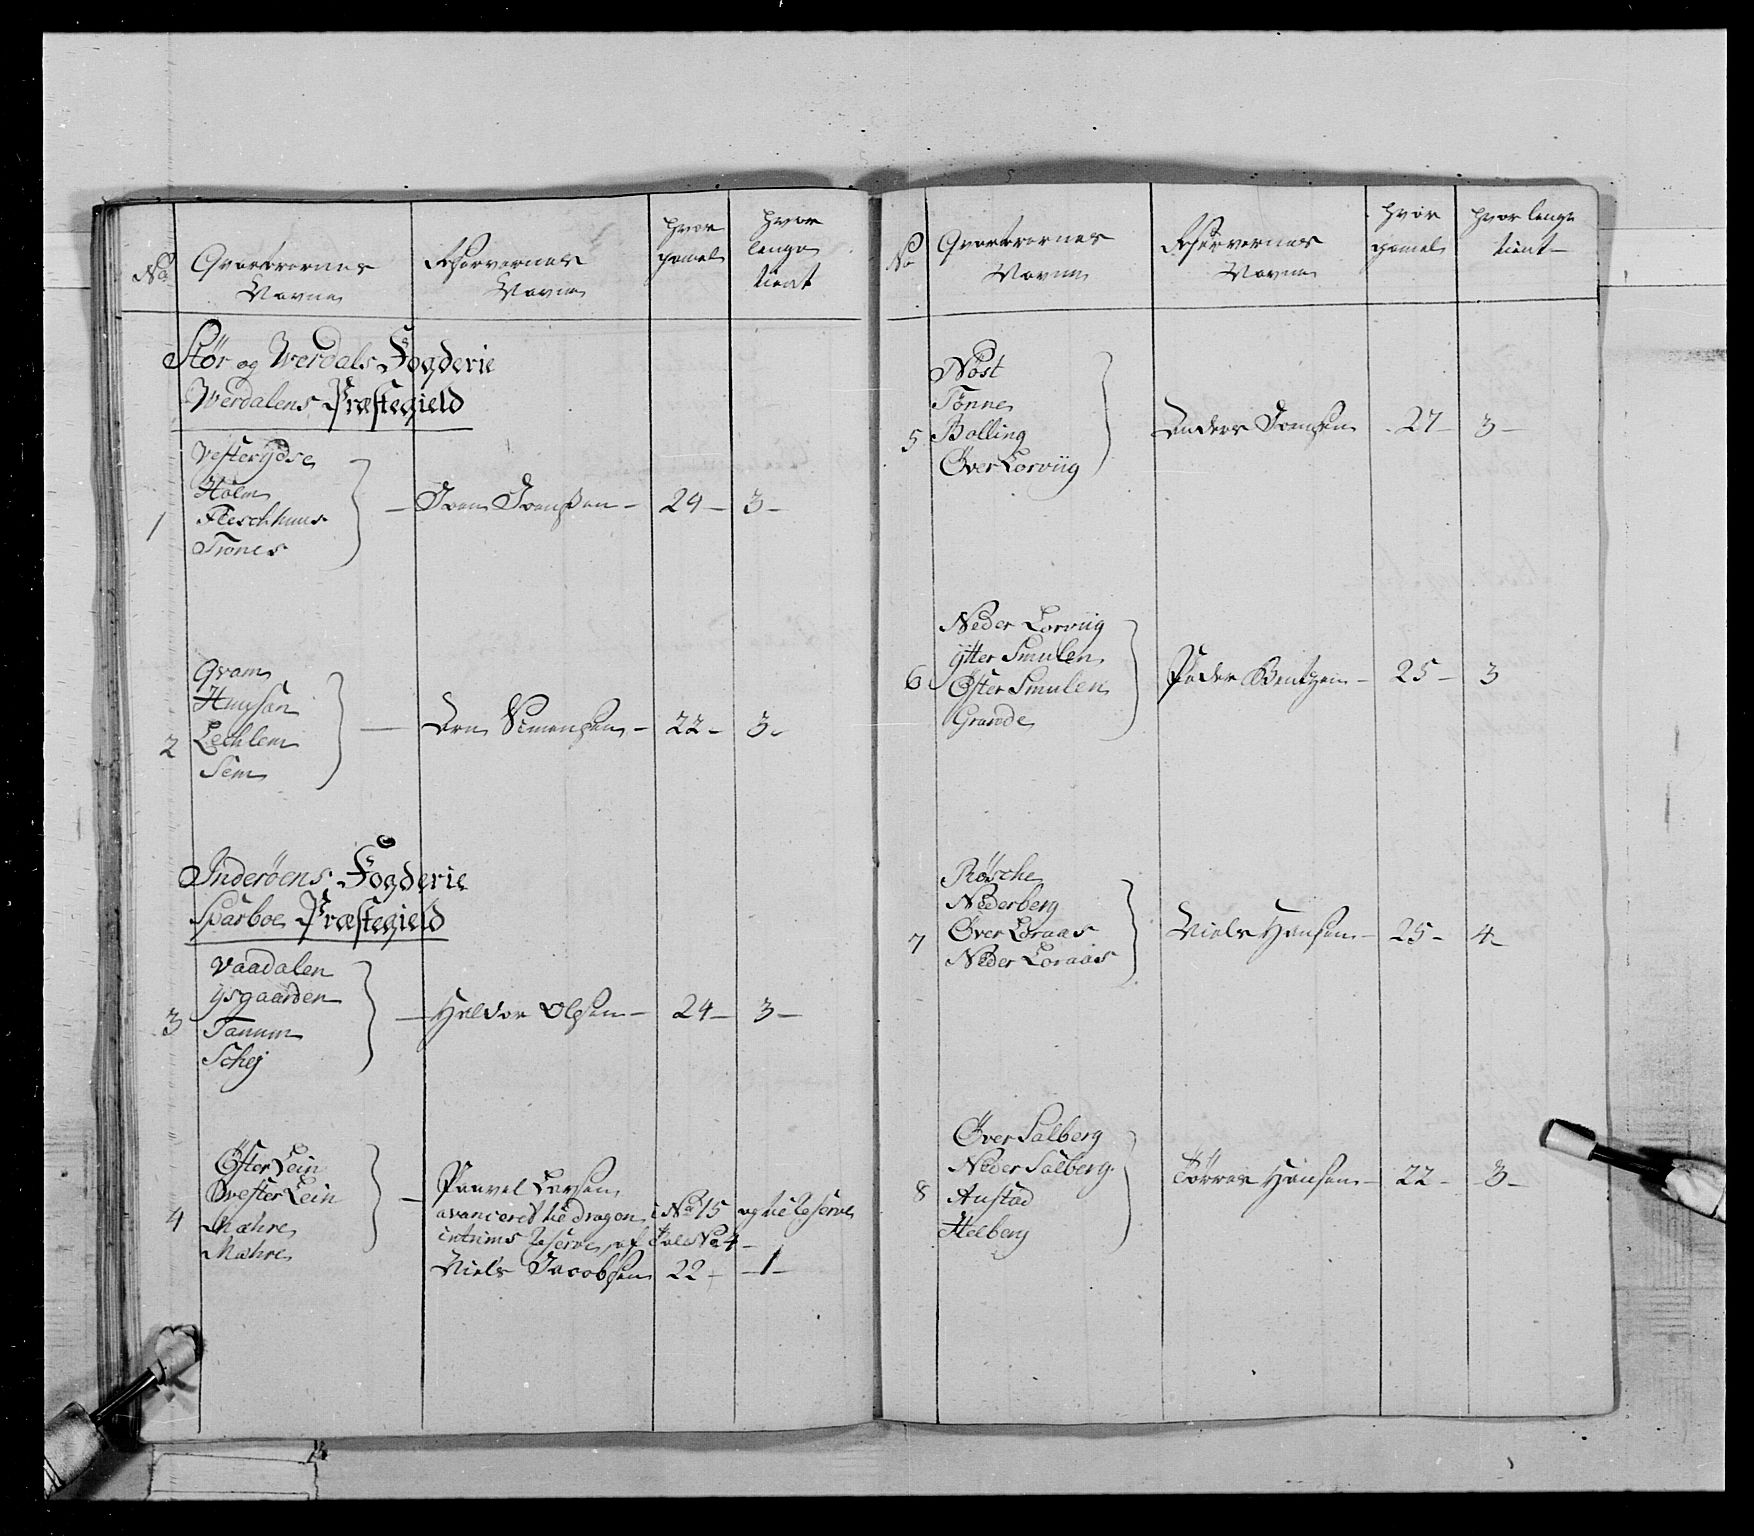 No
Qvarterernes
Navne
Reservernes
Navne
hvor
gamel
hvor
lenge
tient
Stør og Werdals Fogderie
Werdalens Præstegield
1
Vesterÿdse
Holm
Fleschhuus
Trones
Sven Svensen - 24 - 3 -
2
Qvam
Huusan
Lechlem
Sem
Arn Simensen - 22 - 3 -
Inderöens Fogderie
Sparboe Præstegield
3
Vaadalen
ÿsgaarden
Tanum
Schej
Haldor Olsen - 24 - 3 -
4
Öster Lein
Wester Lein
Mæhre
Mæhre
Paavel Larsen
avanceret til dragon i No 15 og til Reserve
intrims Reserve af Bale No 4 -
Niels Jacobsen 22 - 1 -
No
Qvarterernes
Navne
Reservernes
Navne
hvor
gamel
hvor lenge
tient
5
Nöst
Tönne
Balling
Över Lorviig
Anders Svensen - 27 - 3 -
6
Neder Lorviig
ÿtter Smulen
Öster Smulen
Grande
Peder Bentzen - 25 - 3
7
Rösche
Nederberg
Över Loraas
Neder Loraas
Niels Hansen - 25 - 4 -
8
Över Salberg
Neder Salberg
Austad
Helberg
Törres Hansen - 22 - 3 -